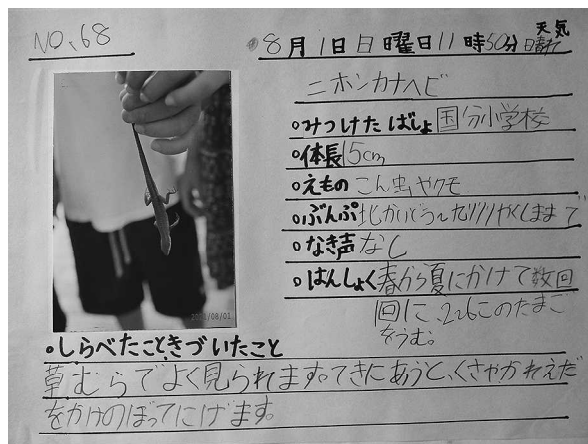 NO.68
8月1日日曜日11時50分 天気晴れ
ニホンカナヘビ
みつけたばしょ 国分小学校
体長15cm
えものこん虫ヤクモ
ぶんぷ北かいどう〜九州やくしままで
なき声なし
はんしょく春から夏にかけて数回
回に、2〜6このたまご
をうむ。
2021/08/01
しらべたこときづいたこと
草むらでよく見られます。てきにあうと、くさやかれえだ
をかけのぼってにげます。